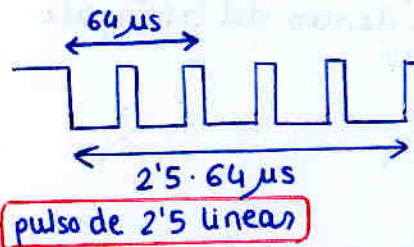 64 µs
2'5 · 64 µs
pulso de 2'5 lineas